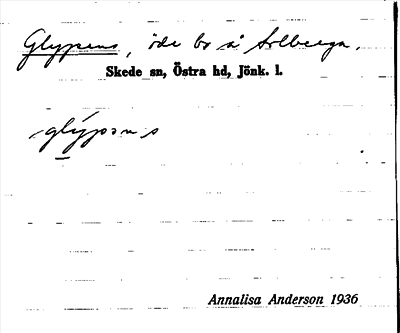 Glypens, öde bo å Solberga.
Skede sn, Östra hd, Jönk. l.
glýpsns
Annalisa Anderson 1936